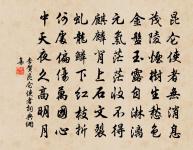 昆仑使者無消息
茂陵煙樹生愁色
金盤玉露自淋漓
元氣茫茫收不得
麒麟背上石文裂
虬龍鱗下紅枝折
何處偏傷萬國心
中天夜久高明月
李賀昆仑使者詞典網
集